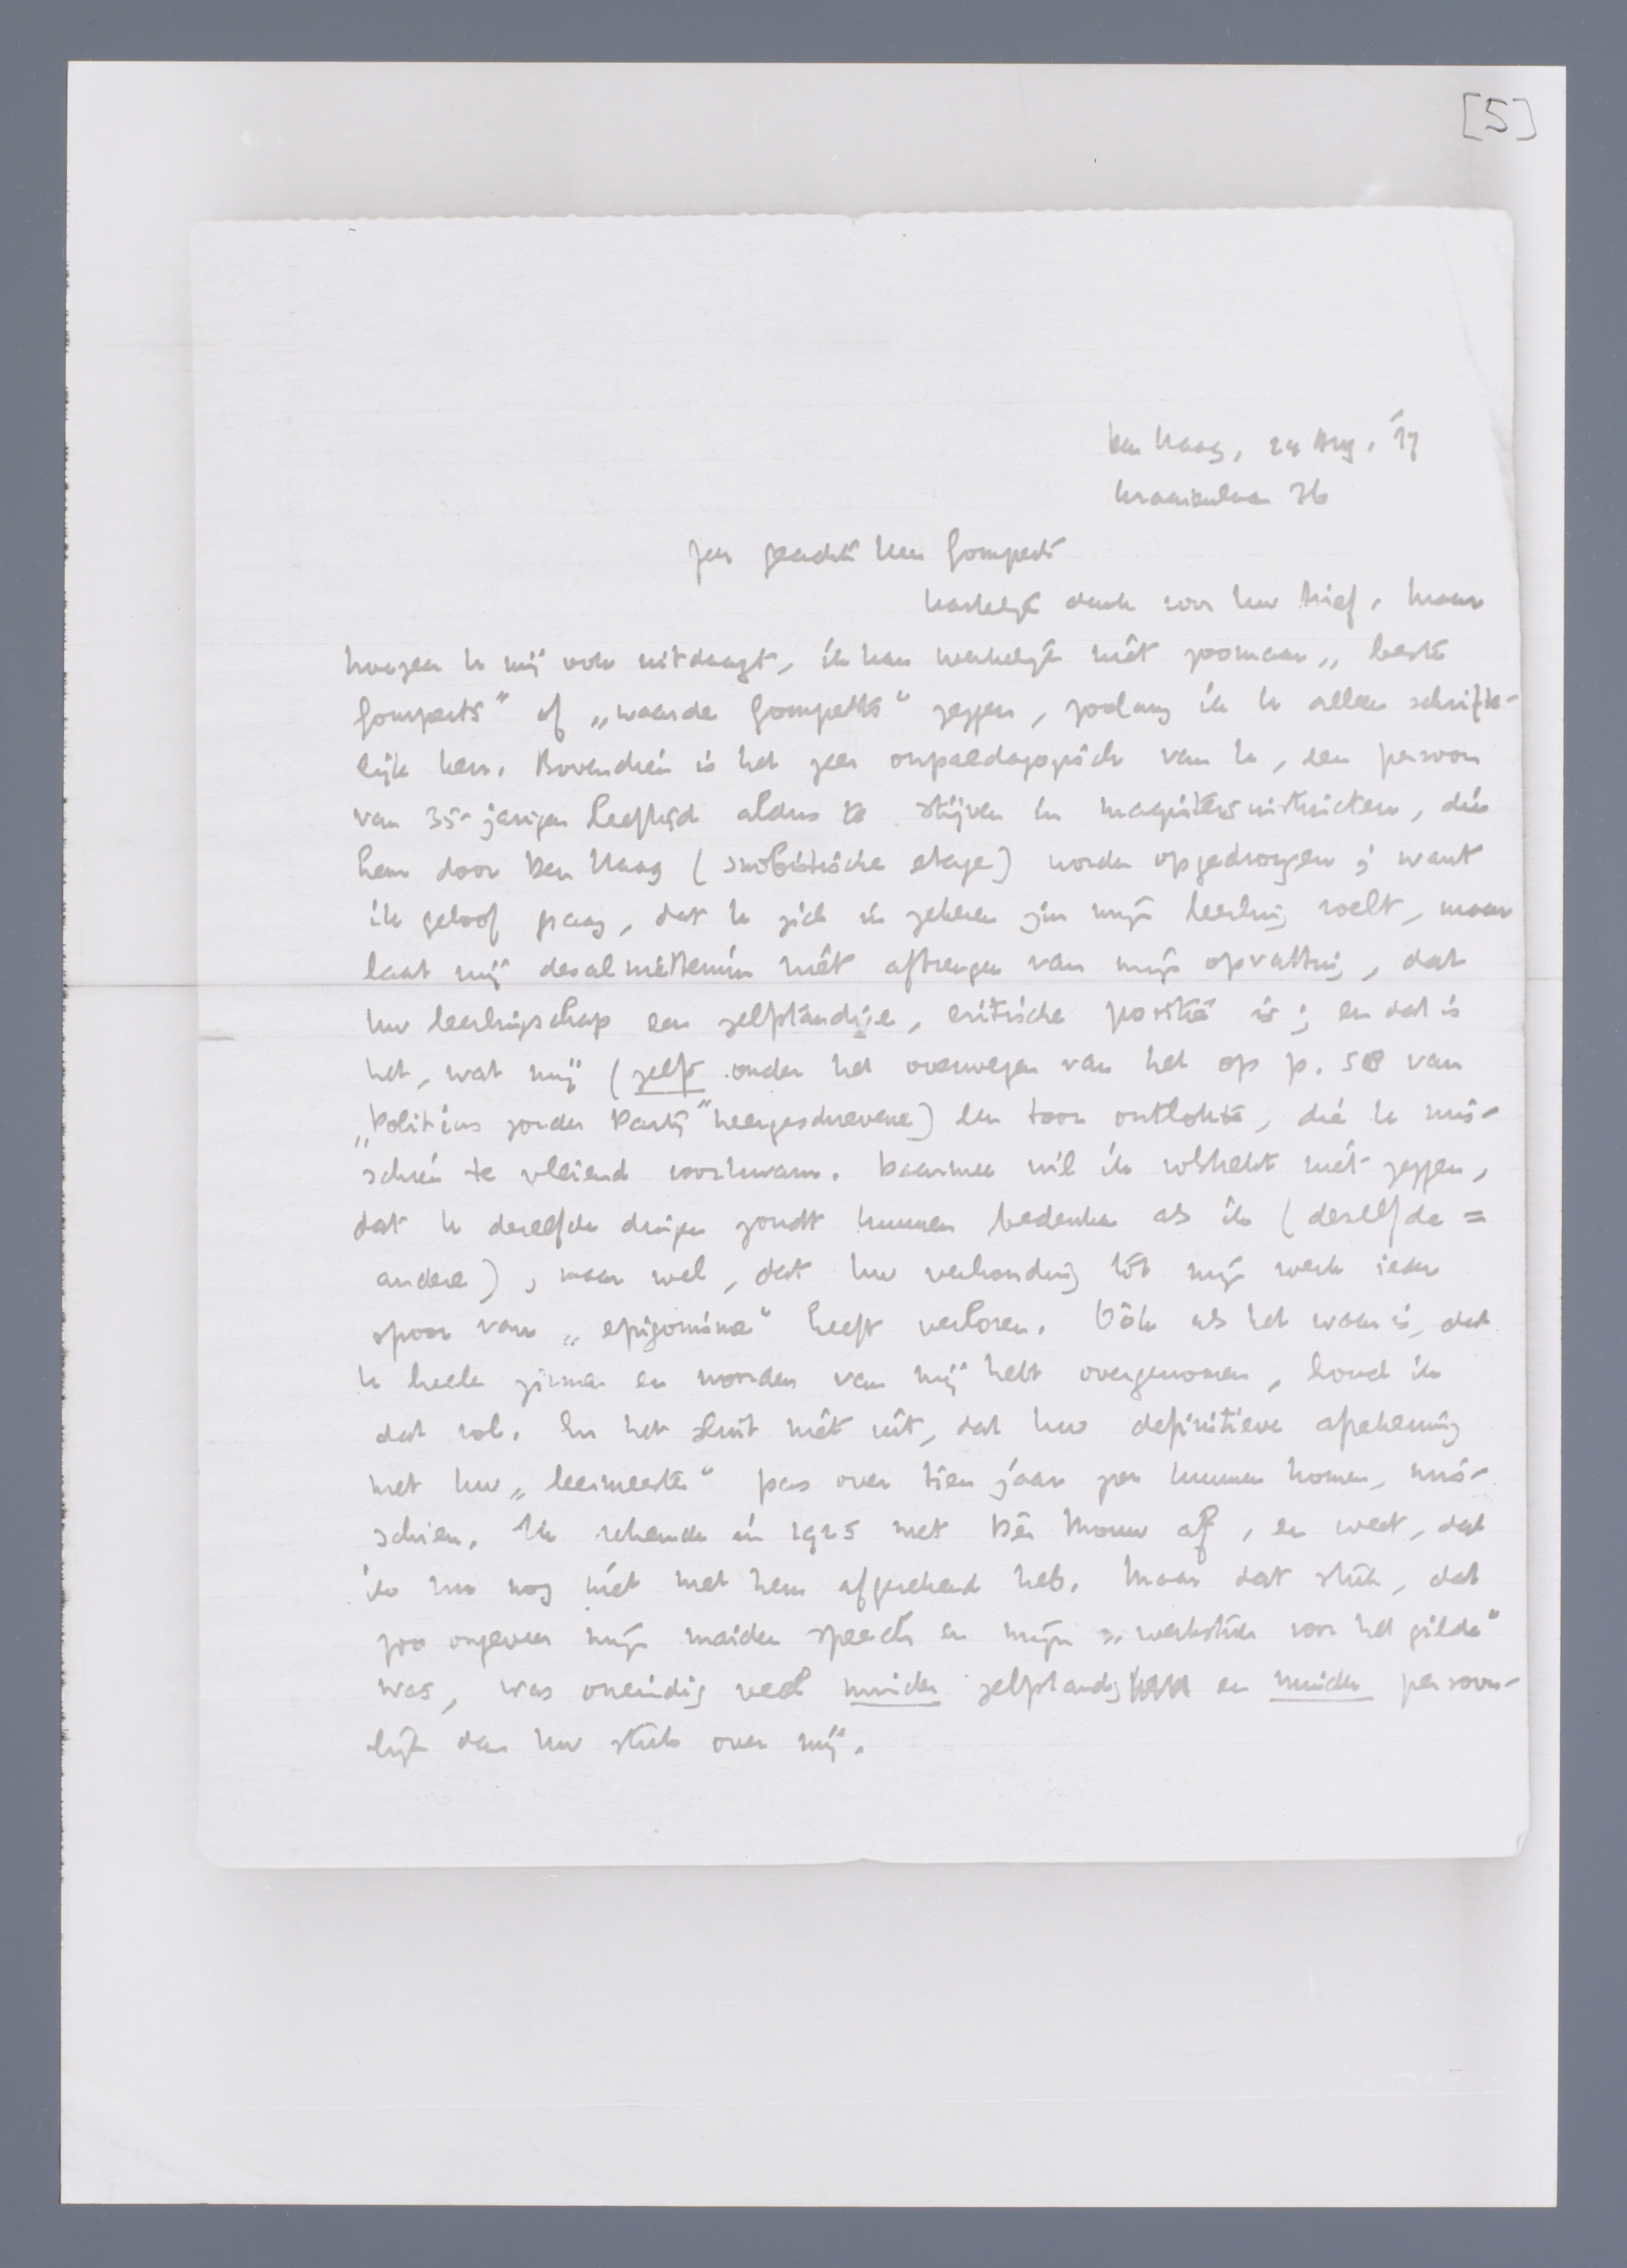 [5]
Den Haag, 24 Aug. '37
Kraaienlaan 36
Zeer geachte Heer Gomperts
Hartelijk dank voor Uw brief. Maar
hoezeer U mij ook uitdaagt, ik kan werkelijk niet zoomaar „beste
Gomperts" of „waarde Gomperts" zeggen, zoolang ik U alleen schrifte-
lijk ken. Bovendien is het zeer onpaedagogisch van U, een persoon
van 35-jarigen leeftijd aldus te stijven in magistersinstincten, die
hem door Den Haag (snobistische etage) worden opgedrongen; want
ik geloof graag, dat U zich in zekeren zin mijn leerling voelt, maar
laat mij desalniettemin niet afbrengen van mijn opvatting, dat
Uw leerlingschap een zelfstandige, critische positie is; en dat is
het, wat mij (zelfs onder het overwegen van het op p. 58 van
„Politicus zonder Partij" neergeschrevene) een toon ontlokte, die U mis-
schien te vleiend voorkwam. Daarmee wil ik volstrekt niet zeggen,
dat U dezelfde dingen zoudt kunnen bedenken als ik (dezelfde =
andere), maar wel, dat Uw verhouding tot mijn werk ieder
spoor van „epigonisme" heeft verloren. Óók als het waar is, dat
U heele zinnen en woorden van mij hebt overgenomen, houd ik
dat vol. En het sluit niet uit, dat Uw definitieve afrekening
met Uw „leermeester" pas over tien jaar zou kunnen komen, mis-
schien. Ik rekende in 1925 met Dèr Mouw af, en weet, dat
ik nu nog niet met hem afgerekend heb. Maar dat stuk, dat
zoo ongeveer mijn maiden speech en mijn „werkstuk voor het gilde"
was, was oneindig veel minder zelfstandig en minder persoon-
lijk dan Uw stuk over mij.